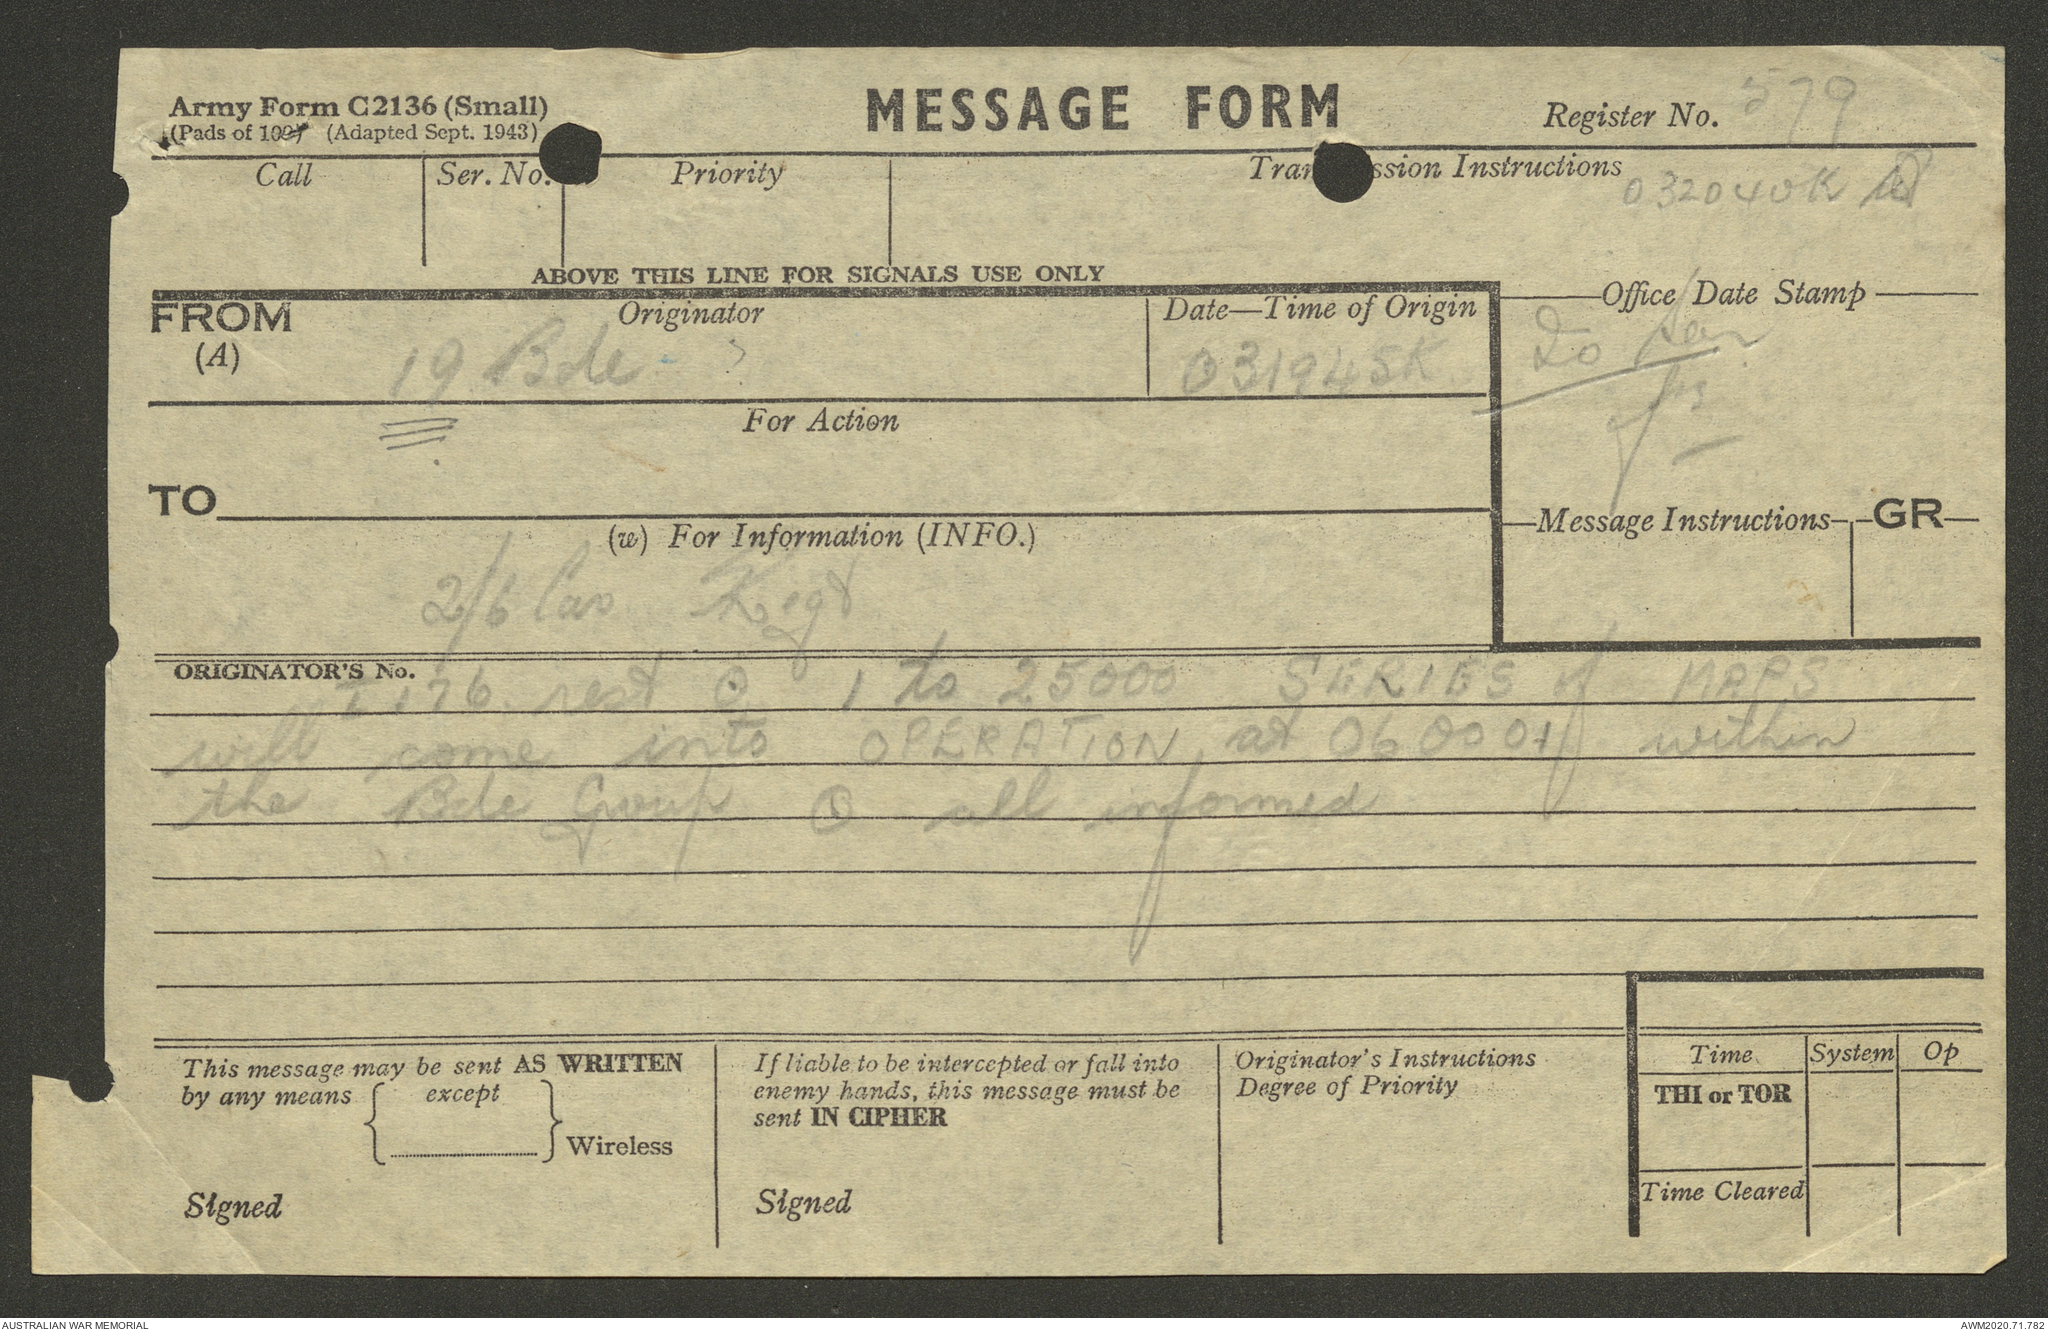 Army Form C2136 (Small)
(Pads of 100) (Adapted Sept. 1943)
MESSAGE FORM
Register No. 579
Call
Ser. No.
Priority
Transmission Instructions
032040K
ABOVE THIS LINE FOR SIGNALS USE ONLY
FROM
(A)
Originator
19 Bde
Date—Time of Origin
031945K
Office Date Stamp
For Action
TO
(w) For Information (INFO.)
2/6 Cav Regt
Message Instructions
GR
ORIGINATOR'S No.
I 176 rest O 1 to 25000 SERIES of MAPS
will come into OPERATION at 060001 within
the Bde Group O all informed
This message may be sent AS WRITTEN
by any means
except
Wireless
Signed
If liable to be intercepted or fall into
enemy hands, this message must be
sent IN CIPHER
Signed
Originator's Instructions
Degree of Priority
Time
System
Op
THI or TOR
Time Cleared
AUSTRALIAN WAR MEMORIAL
AWM2020.71.782